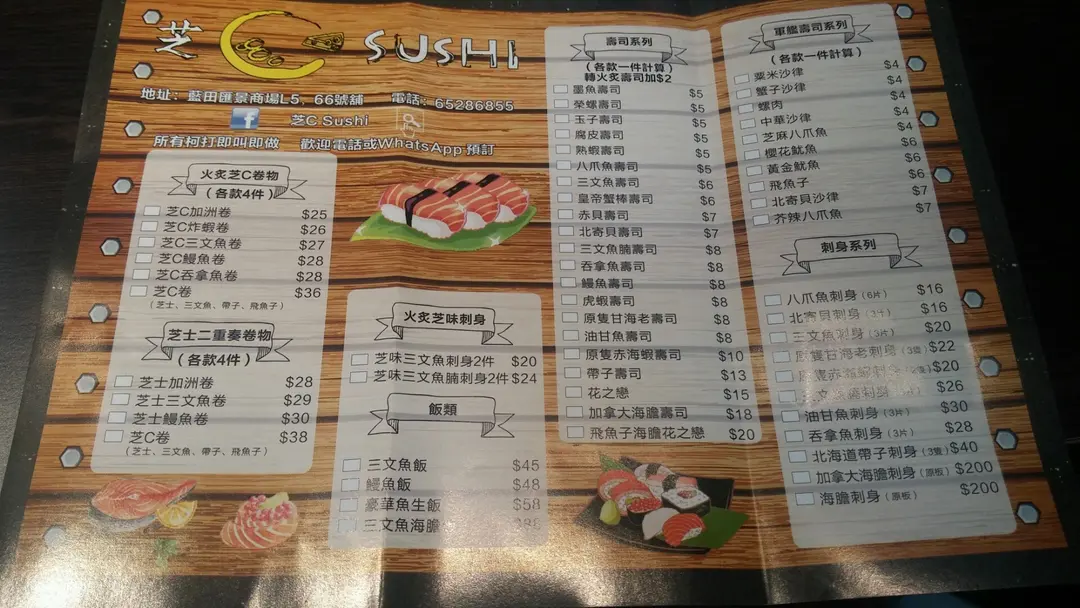 芝C SUSHI
地址：藍田匯景商場L5，66號舖 電話：65286855
芝C Sushi
所有柯打即叫即做 歡迎電話或WhatsApp預訂
火炙芝C卷物
(各款4件)
芝C加洲卷 $25
芝C炸蝦卷 $26
芝C三文魚卷 $27
芝C鰻魚卷 $28
芝C吞拿魚卷 $28
芝C卷 $36
(芝士、三文魚、帶子、飛魚子)
芝士二重奏卷物
(各款4件)
芝士加洲卷 $28
芝士三文魚卷 $29
芝士鰻魚卷 $30
芝C卷 $38
(芝士、三文魚、帶子、飛魚子)
火炙芝味刺身
芝味三文魚刺身2件 $20
芝味三文魚腩刺身2件 $24
飯類
三文魚飯 $45
鰻魚飯 $48
豪華魚生飯 $58
三文魚海膽
壽司系列
(各款一件計算)
轉火炙壽司加$2
墨魚壽司 $5
榮螺壽司 $5
玉子壽司 $5
腐皮壽司 $5
熟蝦壽司 $5
八爪魚壽司 $5
三文魚壽司 $6
皇帝蟹棒壽司 $6
赤貝壽司 $7
北寄貝壽司 $7
三文魚腩壽司 $8
吞拿魚壽司 $8
鰻魚壽司 $8
虎蝦壽司 $8
原隻甘海老壽司 $8
油甘魚壽司 $8
原隻赤海蝦壽司 $10
帶子壽司 $13
花之戀 $15
加拿大海膽壽司 $18
飛魚子海膽花之戀 $20
軍艦壽司系列
(各款一件計算)
粟米沙律 $4
蟹子沙律 $4
螺肉 $4
中華沙律 $4
芝麻八爪魚 $4
櫻花魷魚 $6
黃金魷魚 $6
飛魚子 $6
北寄貝沙律 $7
芥辣八爪魚 $7
刺身系列
八爪魚刺身(6片) $16
北寄貝刺身(3片) $16
三文魚刺身(3片) $20
原隻甘海老刺身(3隻) $22
原隻赤海蝦刺身 $20
三文魚腩刺身 $26
油甘魚刺身(3片) $30
吞拿魚刺身(3片) $28
北海道帶子刺身(3隻) $40
加拿大海膽刺身(原板) $200
海膽刺身(原板) $200